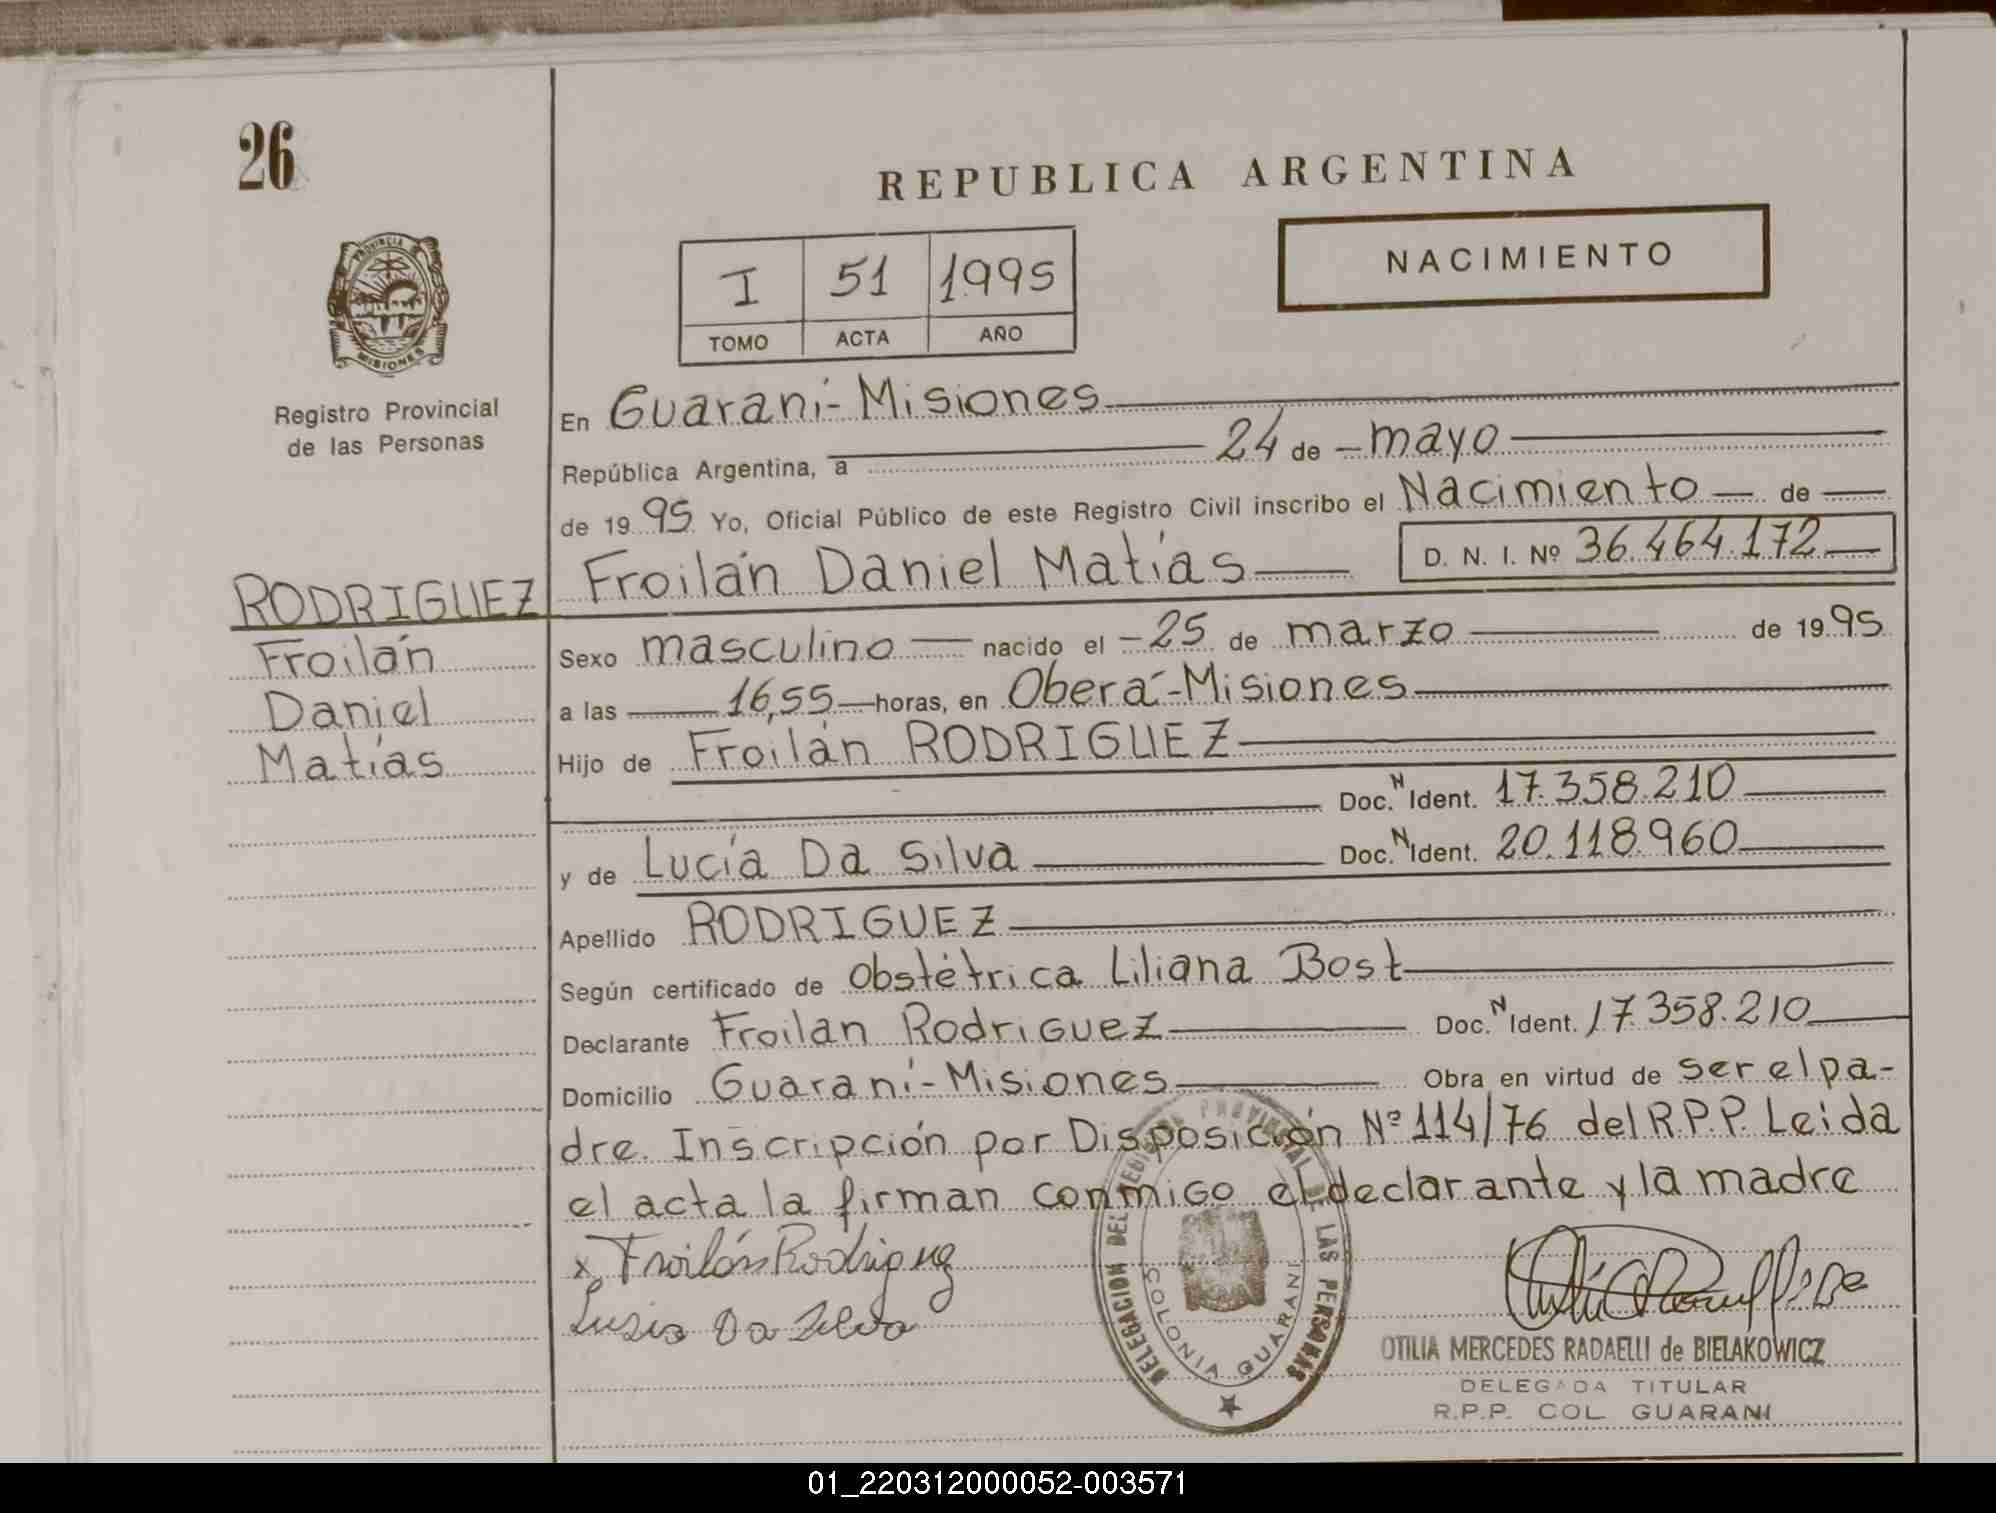 26
REPUBLICA ARGENTINA
PROVINCIA
MISIONES
Registro Provincial
de las Personas
I 51 1995
TOMO ACTA AÑO
NACIMIENTO
En Guaraní-Misiones
República Argentina, a 24 de mayo
de 1995 Yo, Oficial Público de este Registro Civil inscribo el Nacimiento de
Froilán Daniel Matías D. N. I. Nº 36.464.172
RODRIGUEZ
Froilán
Daniel
Matías
Sexo masculino nacido el 25 de marzo de 1995
a las 16,55 horas, en Oberá-Misiones
Hijo de Froilán RODRIGUEZ
Doc. N Ident. 17.358.210
y de Lucía Da Silva Doc. N Ident. 20.118.960
Apellido RODRIGUEZ
Según certificado de Obstétrica Liliana Bost
Declarante Froilan Rodriguez Doc. N Ident. 17.358.210
Domicilio Guaraní-Misiones Obra en virtud de ser el pa-
dre. Inscripción por Disposición Nº 114/76 del R.P.P. Leida
el acta la firman conmigo el declarante y la madre
x Froilán Rodriguez
Lusia Da Silva
DELEGACION DEL REGISTRO PROVINCIAL DE LAS PERSONAS
COLONIA GUARANI
OTILIA MERCEDES RADAELLI de BIELAKOWICZ
DELEGADA TITULAR
R.P.P. COL GUARANI
01_220312000052-003571